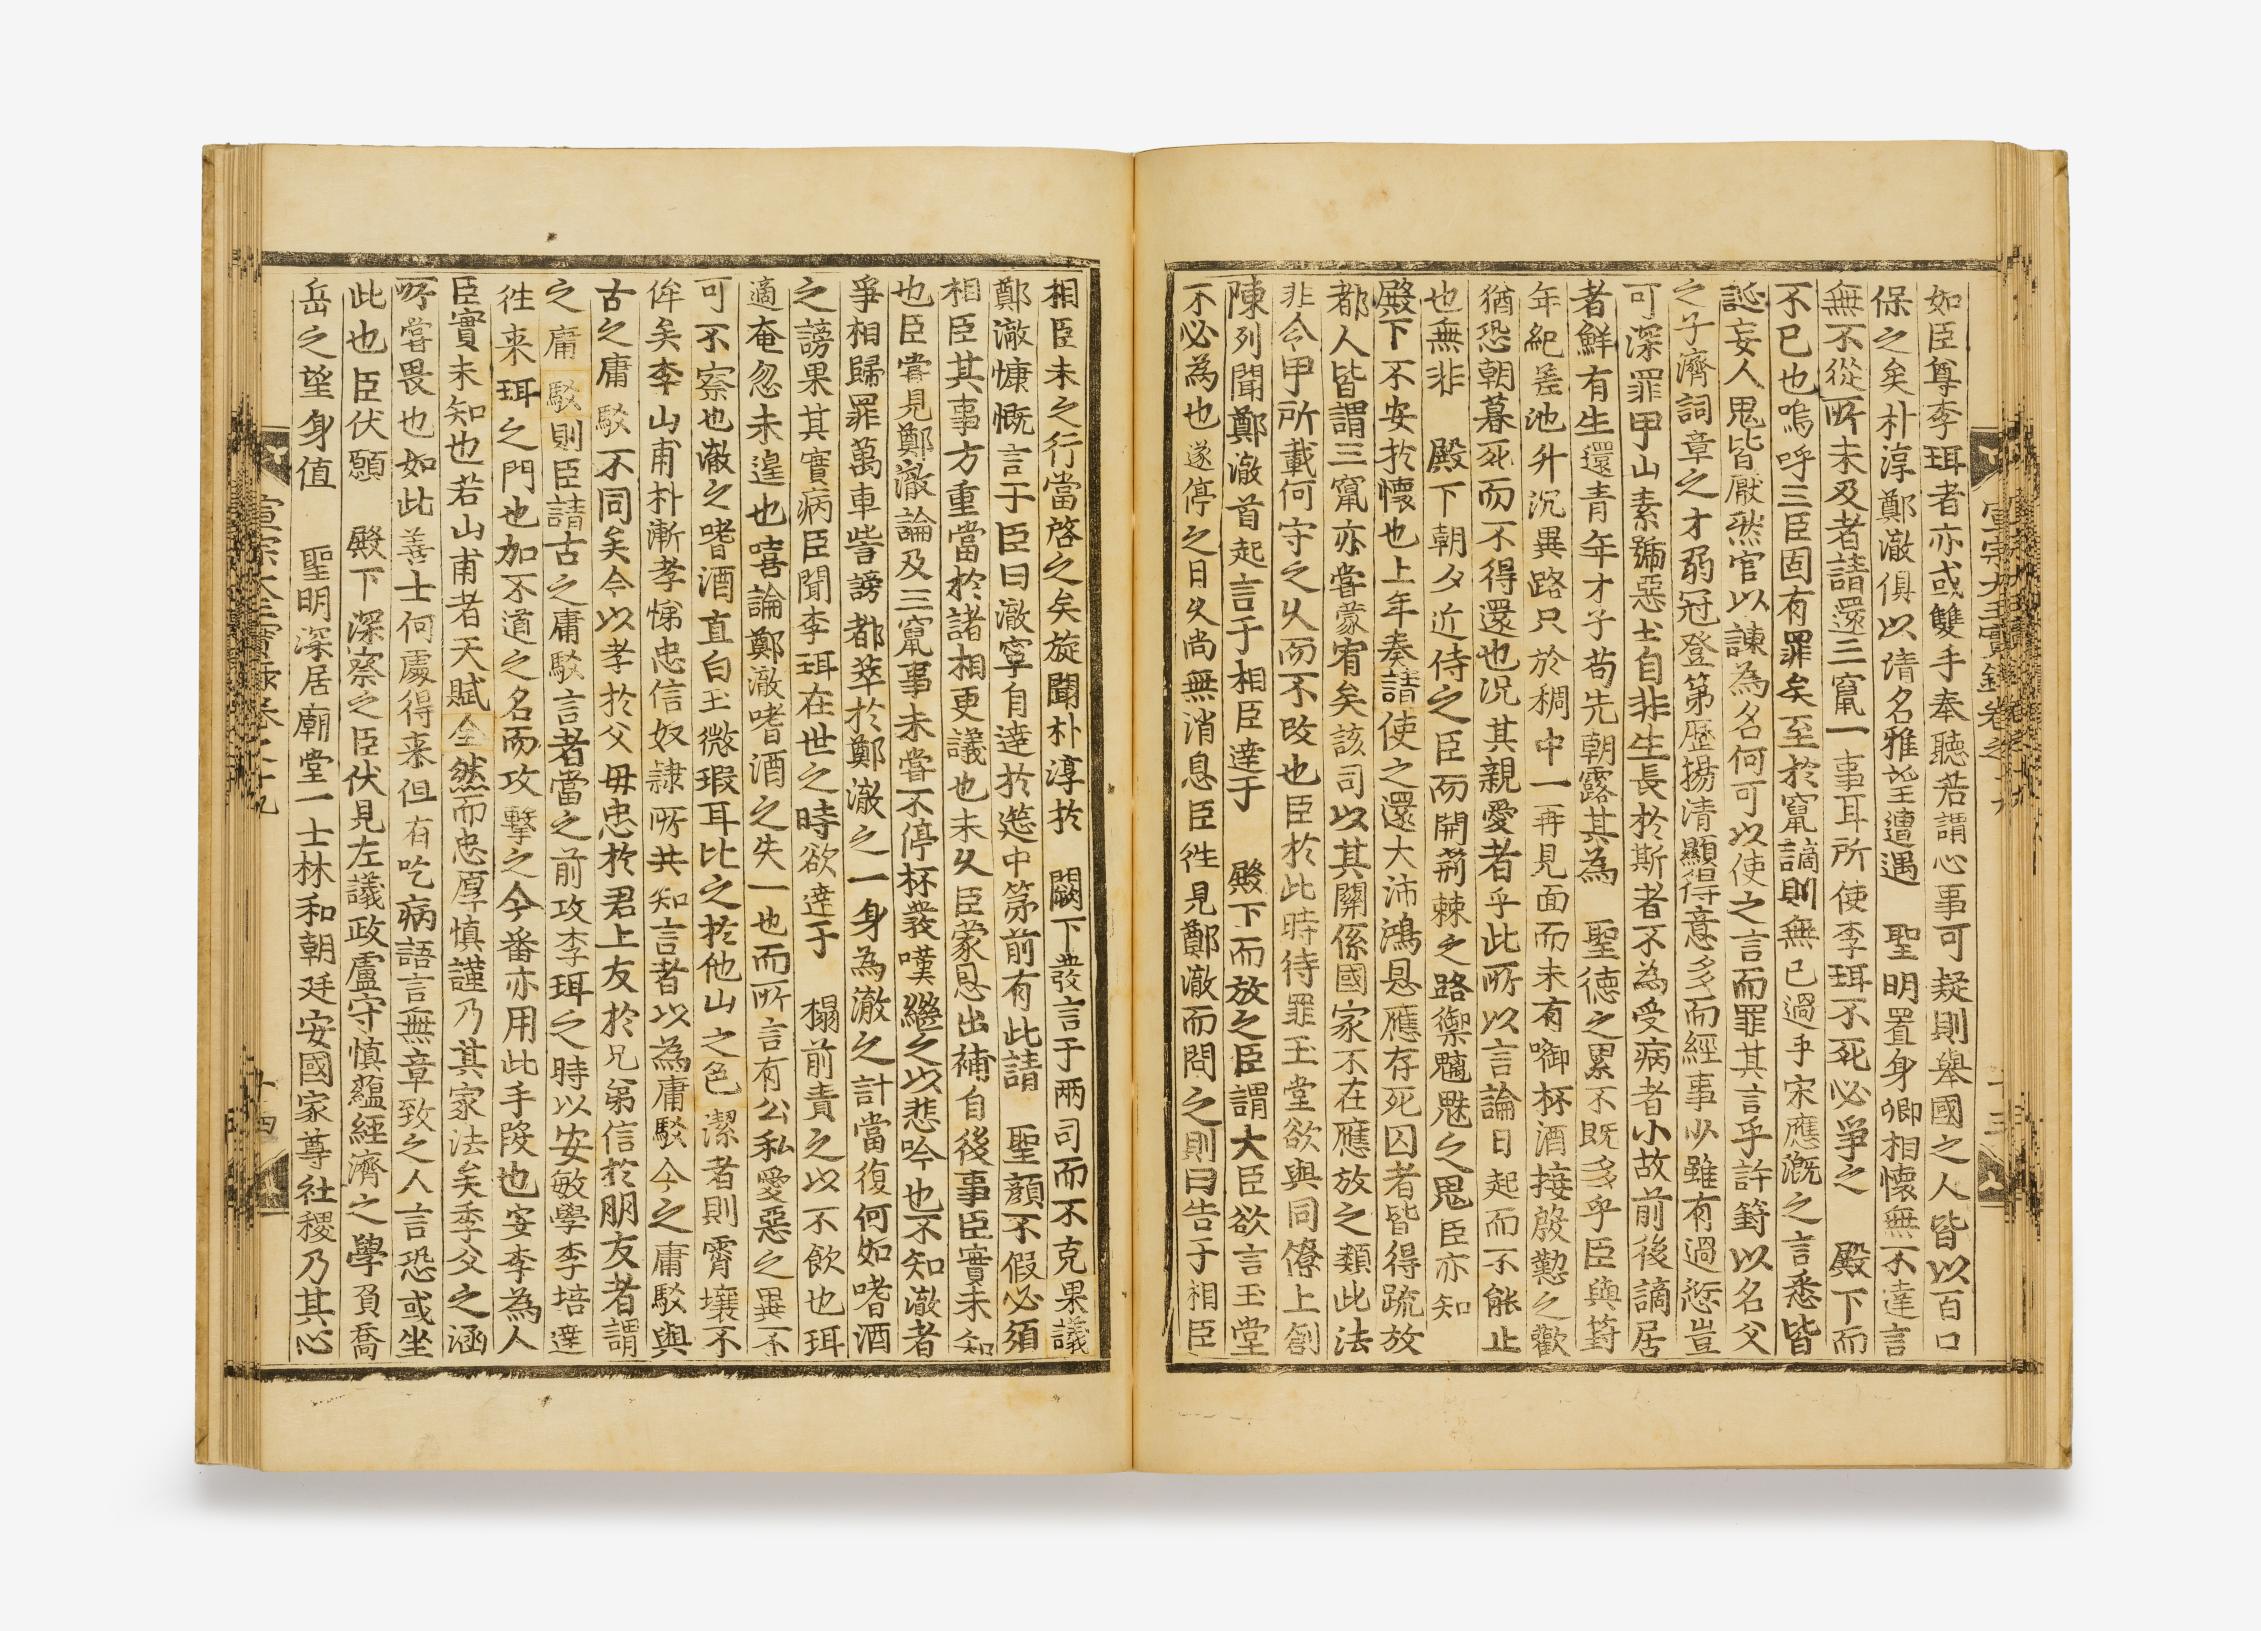 如臣尊李珥者亦或雙手奉聽若謂心事可疑則擧國之人皆以百口
保之矣朴淳鄭澈俱以淸名雅望遭遇 聖明置身卿相懷無不達言
無不從所未及者請還三竄一事耳所使李珥不死必爭之 殿下而
不已也嗚呼三臣固有罪矣至於竄謫則無已過乎宋應漑之言悉皆
誕妄人鬼皆厭然官以諫爲名何可以使之言而罪其言乎許篈以名父
之子濟詞章之才弱冠登第歷揚淸顯得意多而經事少雖有過愆豈
可深罪甲山素號惡土自非生長於斯者不爲受病者小故前後謫居
者鮮有生還靑年才子苟先朝露其爲 聖德之累不旣多乎臣與篈
年紀差池升沉異路只於稠中一再見面而未有啣杯酒接慇懃之歡
猶恐朝暮死而不得還也況其親愛者乎此所以言論日起而不能止
也無非 殿下朝夕近侍之臣而開荊棘之路禦魑魅之鬼臣亦知
殿下不安於懷也上年奏請使之還大沛鴻恩應存死囚者皆得疏放
都人皆謂三竄亦嘗蒙宥矣該司以其關係國家不在應放之類此法
非令甲所載何守之久而不改也臣於此時待罪玉堂欲與同僚上劄
陳列聞鄭澈首起言于相臣達于 殿下而放之臣謂大臣欲言玉堂
不必爲也遂停之日久尙無消息臣往見鄭澈而問之則曰告于相臣
宣宗大王實錄卷之十九
十三
相臣未之行當啓之矣旋聞朴淳於 闕下發言于兩司而不克果議
鄭澈慷慨言于臣曰澈寧自達於筵中第前有此請 聖顔不假必須
相臣其事方重當於諸相更議也未久臣蒙恩出補自後事臣實未知
也臣嘗見鄭澈論及三竄事未嘗不停杯發嘆繼之以悲吟也不知澈者
爭相歸罪萬車訾謗都萃於鄭澈之一身爲澈之計當復何如嗜酒
之謗果其實病臣聞李珥在世之時欲達于 榻前責之以不飮也珥
適奄忽未遑也噫論鄭澈嗜酒之失一也而所言有公私愛惡之異不
可不察也澈之嗜酒直白玉微瑕耳比之於他山之色潔者則霄壤不
侔矣李山甫朴漸孝悌忠信奴隷所共知言者以爲庸駁今之庸駁與
古之庸駁不同矣今以孝於父母忠於君上友於兄弟信於朋友者謂
之庸駁則臣請古之庸駁言者當之前攻李珥之時以安敏學李培達
往來珥之門也加不道之名而攻擊之今番亦用此手段也安李爲人
臣實未知也若山甫者天賦全然而忠厚愼謹乃其家法矣季父之涵
所嘗畏也如此善士何處得來但有吃病語言無章致之人言恐或坐
此也臣伏願 殿下深察之臣伏見左議政盧守愼蘊經濟之學負喬
岳之望身値 聖明深居廟堂一士林和朝廷安國家尊社稷乃其心
宣宗大王實錄卷之十九
十四